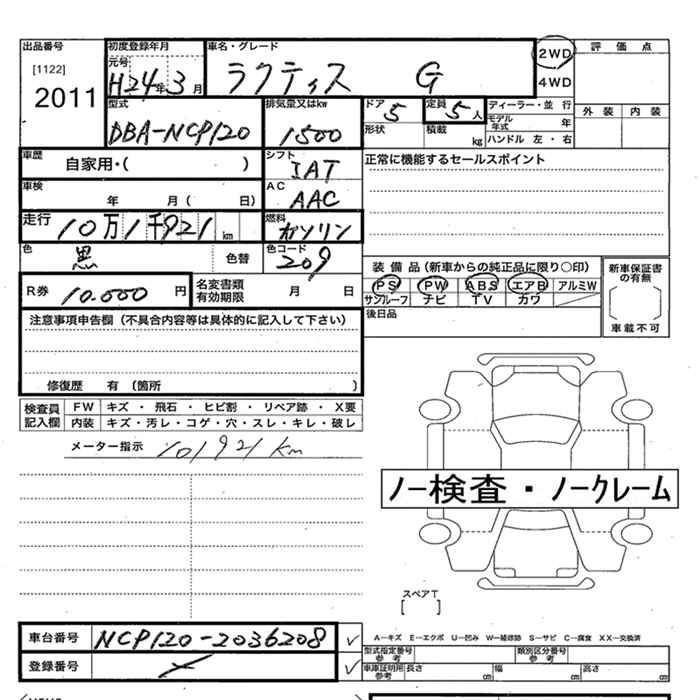 出品番号 初度登録年月 車名・グレード 評価点
[1122] 元号 2WD
2011 H24年3月 ラクティス G 4WD
型式 排気量又はkw ドア 定員 ディーラー・並行 外装 内装
DBA-NCP120 1500 5 5人 モデル年式 年
形状 積載 kg ハンドル 左・右
車歴 自家用・( ) シフト IAT 正常に機能するセールスポイント
車検 年 月( 日) AC AAC
走行 10万1千921km 燃料 ガソリン
色 黒 色替 色コード 209
装備品(新車からの純正品に限り○印) 新車保証書の有無
R券 10.000円 名変書類有効期限 月 日 PS PW ABS エアB アルミW
サンルーフ ナビ TV カワ
注意事項申告欄(不具合内容等は具体的に記入して下さい) 後日品 車載不可
修復歴 有(箇所 )
検査員記入欄 FW キズ・飛石・ヒビ割・リペア跡・X要
内装 キズ・汚レ・コゲ・穴・スレ・キレ・破レ
メーター指示 101921km
ノー検査・ノークレーム
スペアT
[ ]
車台番号 NCP120-2036208 ✓ A-キズ E-エクボ U-凹み W-補修跡 S-サビ C-腐食 XX-交換済
型式指定番号参考 類別区分番号参考
登録番号 ✓ 車庫証明用参考 長さ cm 幅 cm 高さ cm